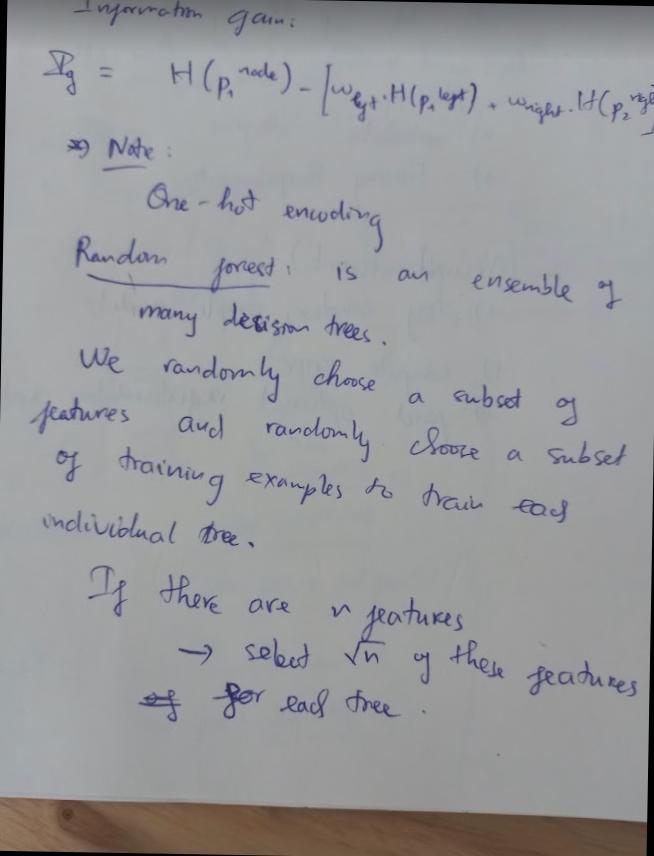 Information gain:
Ig = H(p₁^node) - [w_left.H(p₁^left) + w_right.H(p₂^right)
=> Note:
One-hot encoding
Random forest: is an ensemble of
many decision trees.
We randomly choose a subset of
features and randomly choose a subset
of training examples to train each
individual tree.
If there are n features
→ select √n of these features
for each tree.